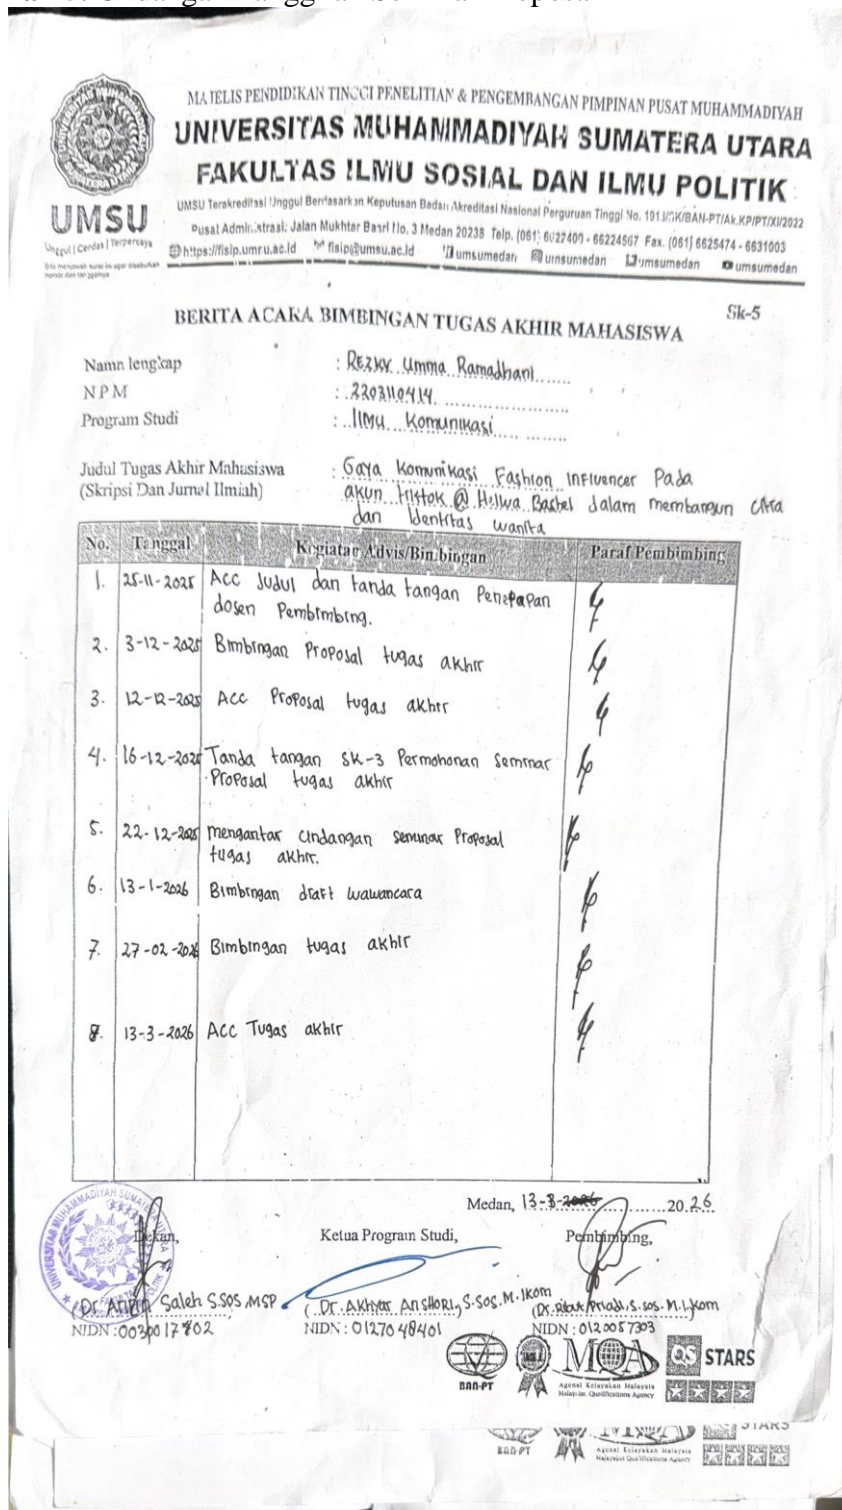 MAJELIS PENDIDIKAN TINGGI PENELITIAN & PENGEMBANGAN PIMPINAN PUSAT MUHAMMADIYAH
UNIVERSITAS MUHAMMADIYAH SUMATERA UTARA
FAKULTAS ILMU SOSIAL DAN ILMU POLITIK
UMSU
Unggul | Cerdas | Terpercaya
UMSU Terakreditasi Unggul Berdasarkan Keputusan Badan Akreditasi Nasional Perguruan Tinggi No. 191/SK/BAN-PT/Ak.KP/PT/XI/2022
Pusat Administrasi: Jalan Mukhtar Basri No. 3 Medan 20238 Telp. (061) 6622400 - 66224567 Fax. (061) 6625474 - 6631003
https://fisip.umsu.ac.id fisip@umsu.ac.id umsumedan umsumedan umsumedan umsumedan
Sk-5
BERITA ACARA BIMBINGAN TUGAS AKHIR MAHASISWA
Nama lengkap : Rezky Umma Ramadhani
NPM : 2203110414
Program Studi : Ilmu Komunikasi
Judul Tugas Akhir Mahasiswa : Gaya Komunikasi Fashion Influencer Pada
(Skripsi Dan Jurnal Ilmiah) akun tiktok @ Helwa Bastel dalam membangun citra
dan Identitas wanita
No. Tanggal Kegiatan Advis/Bimbingan Paraf Pembimbing
1. 25-11-2025 Acc Judul dan tanda tangan Penetapan
dosen Pembimbing.
2. 3-12-2025 Bimbingan Proposal tugas akhir
3. 12-12-2025 Acc Proposal tugas akhir
4. 16-12-2025 Tanda tangan SK-3 Permohonan Seminar
Proposal tugas akhir
5. 22-12-2025 mengantar undangan seminar Proposal
tugas akhir.
6. 13-1-2026 Bimbingan draft wawancara
7. 27-02-2026 Bimbingan tugas akhir
8. 13-3-2026 Acc Tugas akhir
Medan, 13-3- 2026
Dekan, Ketua Program Studi, Pembimbing,
(Dr. Arifin Saleh S.Sos, MSP (Dr. Akhyar Anshori, S.Sos. M.Ikom (Dr. Ribut Priadi, S.sos. M.I.kom
NIDN : 0030017402 NIDN : 0127048401 NIDN : 0120057303
BAN-PT MQA QS STARS
Agensi Kelayakan Malaysia
Malaysian Qualifications Agency
BAN-PT STARS
Agensi Kelayakan Malaysia
Malaysian Qualifications Agency